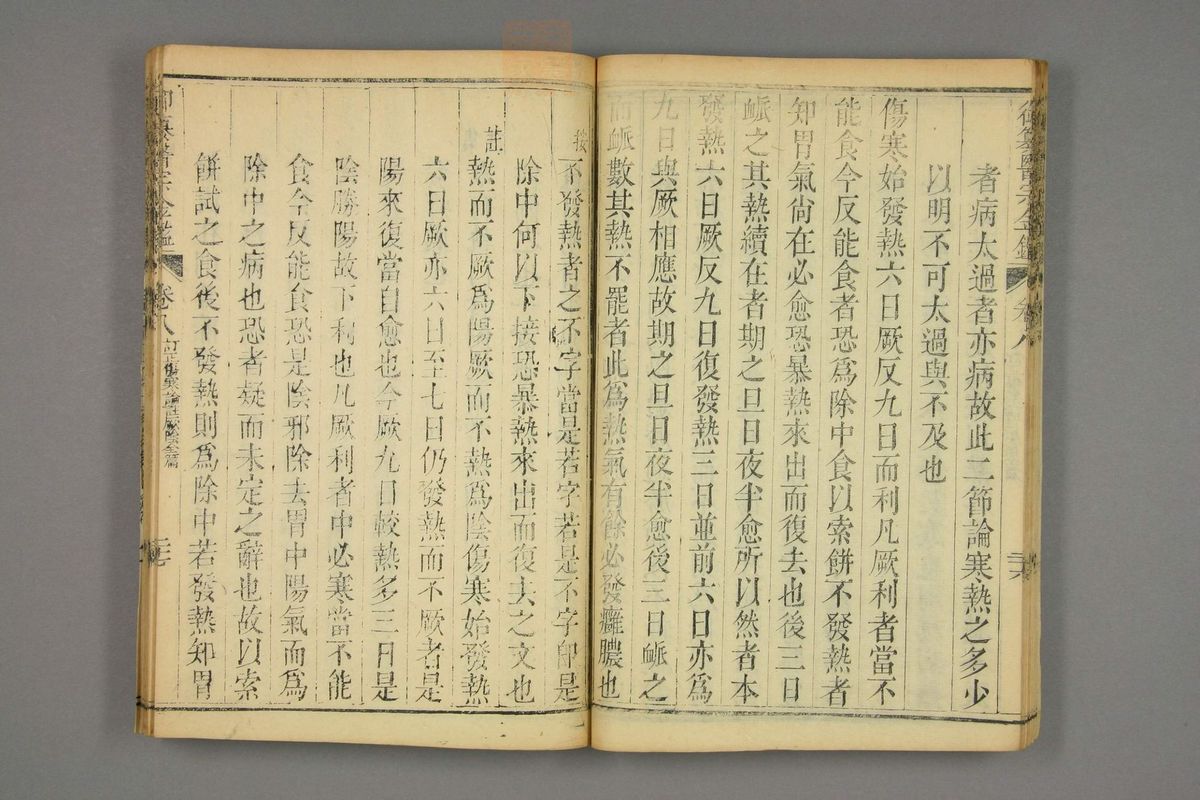 御纂醫宗金鑑 卷八 二六
者病太過者亦病故此二節論寒熱之多少
以明不可太過與不及也
傷寒始發熱六日厥反九日而利凡厥利者當不
能食今反能食者恐爲除中食以索餅不發熱者
知胃氣尚在必愈恐暴熱來出而復去也後三日
脈之其熱續在者期之旦日夜半愈所以然者本
發熱六日厥反九日復發熱三日並前六日亦爲
九日與厥相應故期之旦日夜半愈後三日脈之
而脈數其熱不罷者此爲熱氣有餘必發癰膿也
按 不發熱者之不字當是若字若是不字即是
除中何以下接恐暴熱來出而復去之文也
註 熱而不厥爲陽厥而不熱爲陰傷寒始發熱
六日厥亦六日至七日仍發熱而不厥者是
陽來復當自愈也今厥九日較熱多三日是
陰勝陽故下利也凡厥利者中必寒當不能
食今反能食恐是陰邪除去胃中陽氣而爲
除中之病也恐者疑而未定之辭也故以索
餅試之食後不發熱則爲除中若發熱知胃
御纂醫宗金鑑 卷八 訂正傷寒論註厥陰全篇 二七